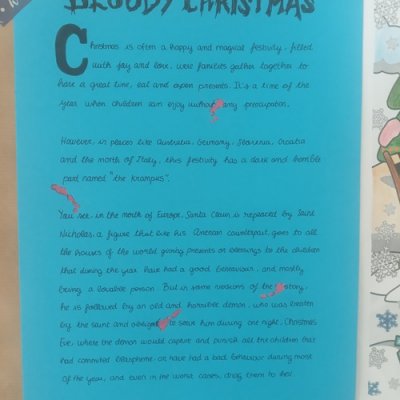 BLOODY CHRISTMAS
Christmas is often a happy and magical festivity, filled
with joy and love, were families gather together to
have a great time, eat and open presents. It's a time of the
year when children can enjoy without any preocupation.
However, in places like Australia, Germany, Slovenia, Croatia
and the north of Italy, this festivity has a dark and horrible
part named "the Krampus".
You see, in the north of Europe, Santa Claus is replaced by Saint
Nicholas, a figure that like his American counterpart, goes to all
the houses of the world giving presents or blessings to the children
that during the year have had a good behaviour, and mostly
being a lovable person. But in some versions of the story,
he is followed by an old and horrible demon, who was beaten
by the saint and obliged to serve him during one night, Christmas
Eve, where the demon would capture and punish all the children that
had commited blasphemie, or have had a bad behaviour during most
of the year, and even in the worst cases, drag them to hell.